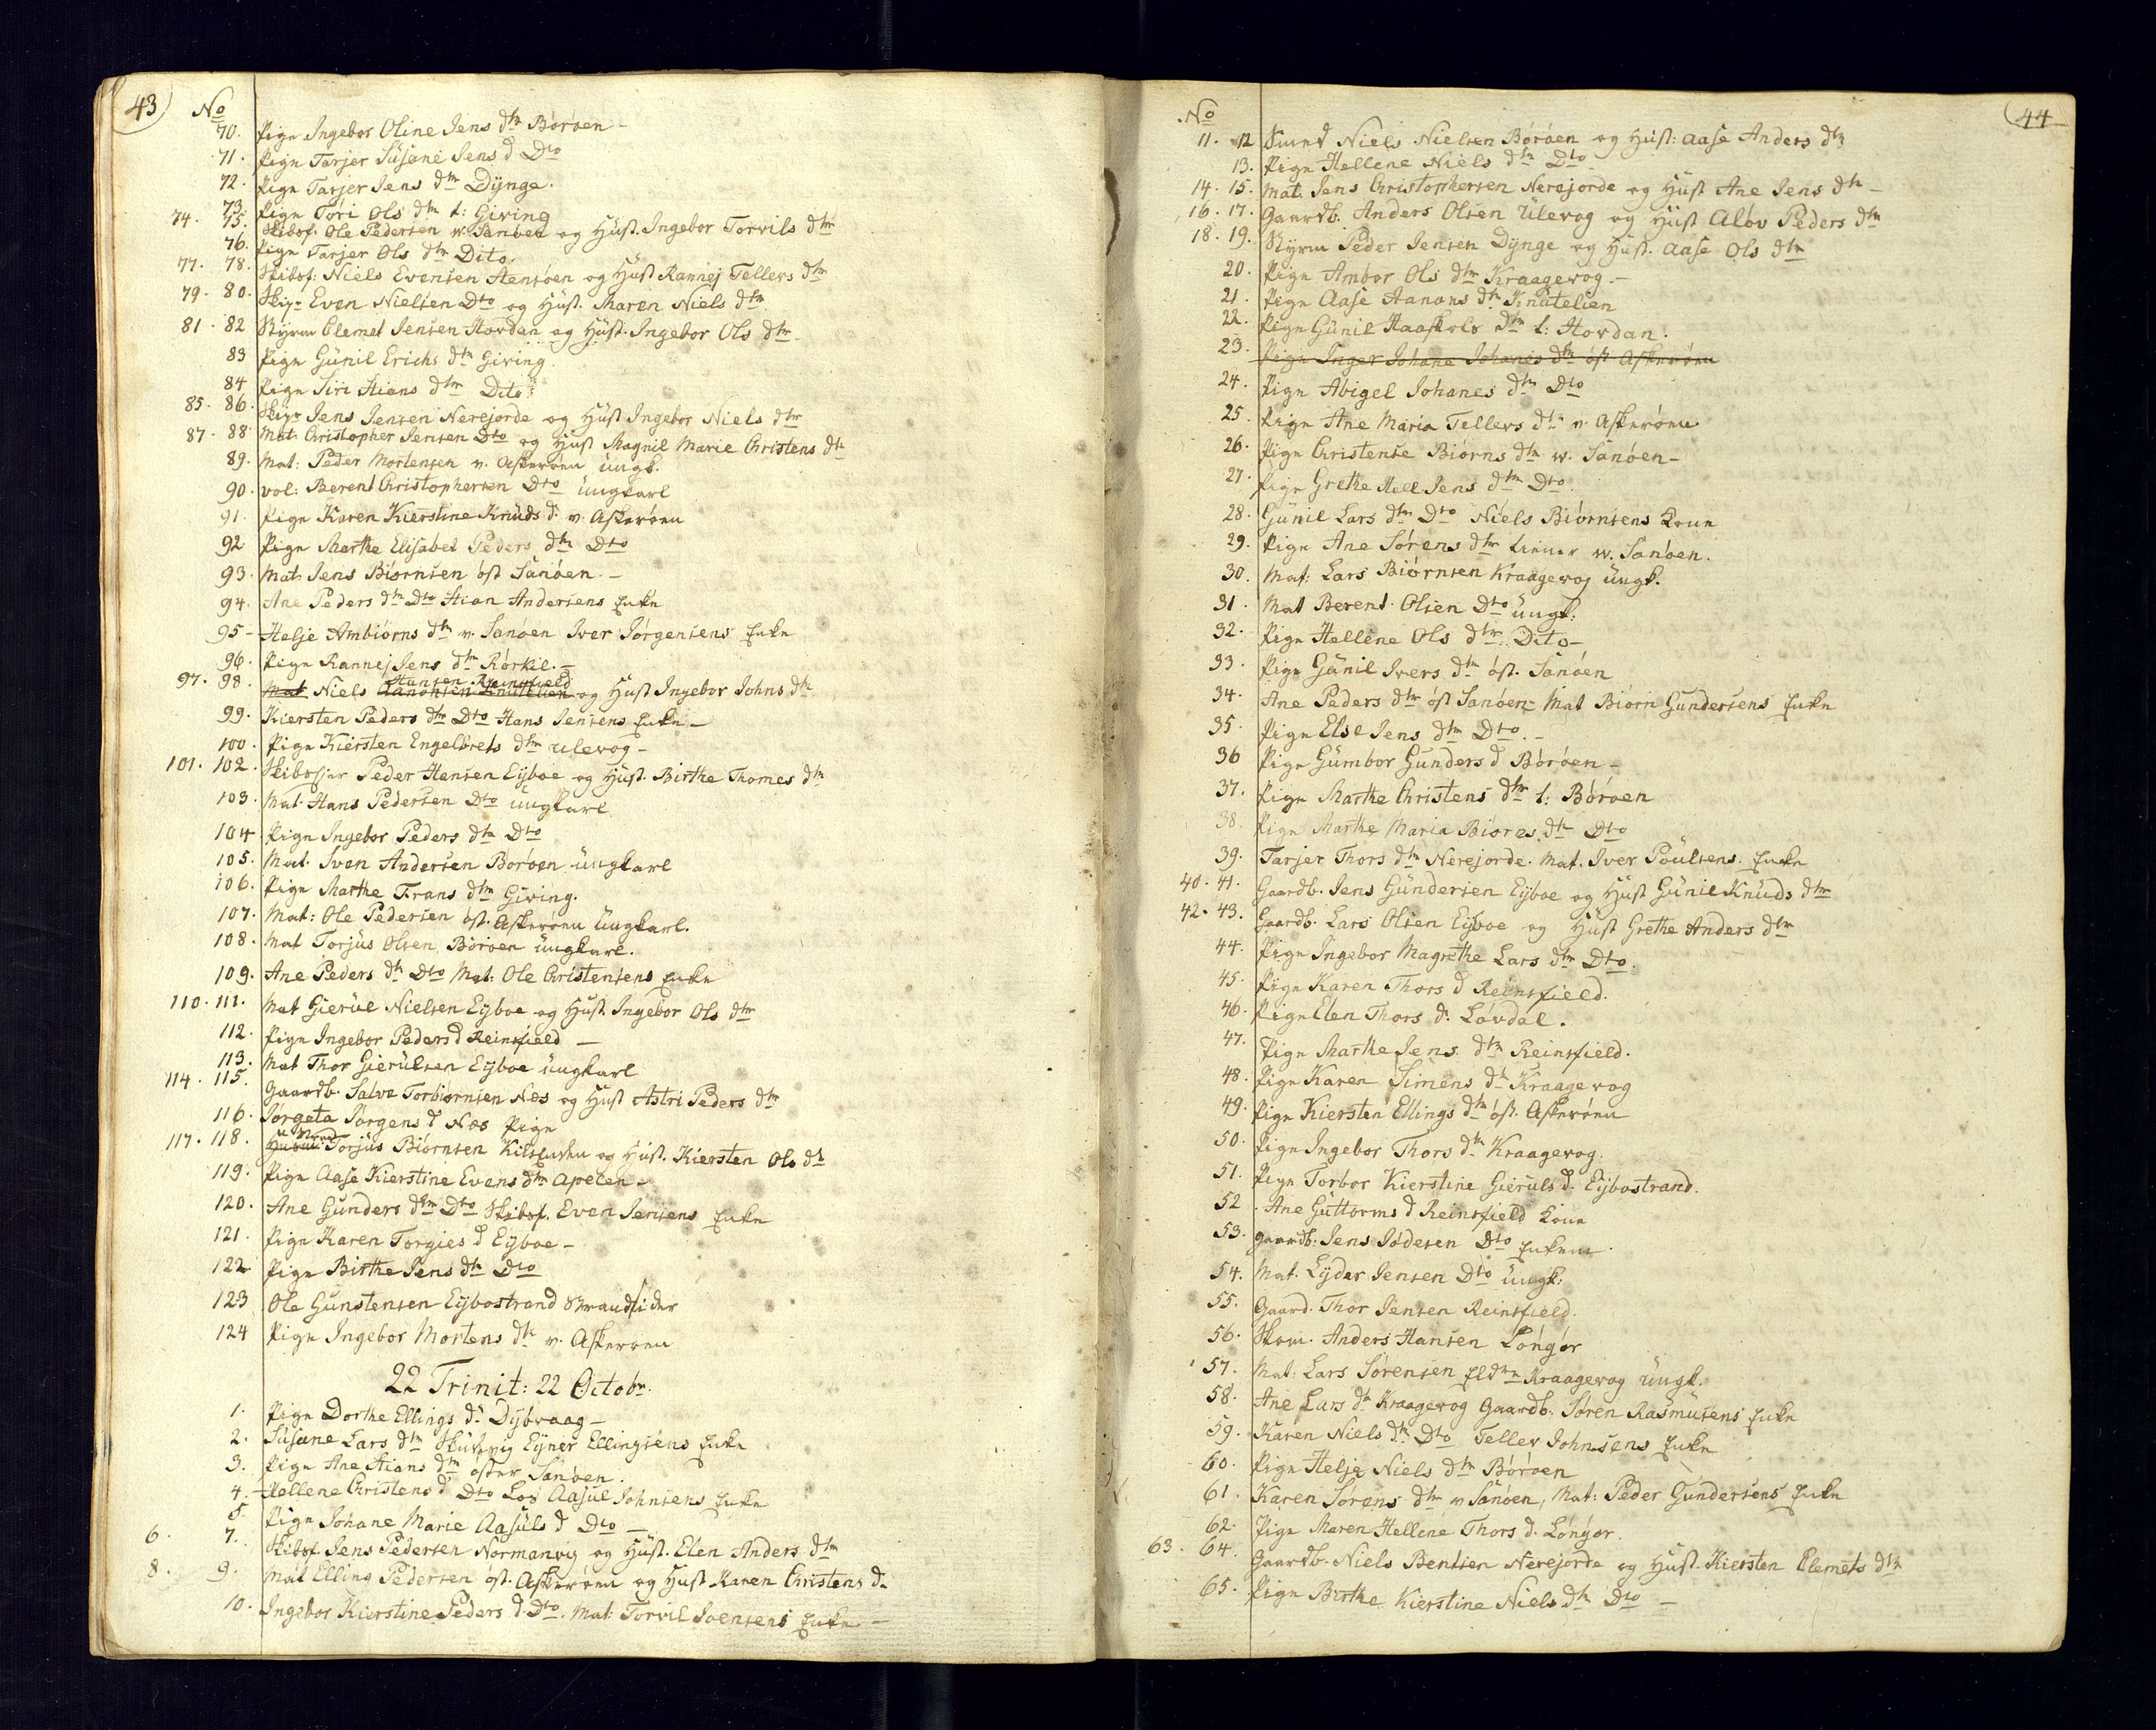 43
No
70. Pige Ingebor Oline Jens dtr Börøen -
71. Pige Tarjer Susane Jens d Dto
72. Pige Tarjer Jens dtr Dÿnge.
73. Pige Töri Ols dtr l: Giving
74. 75. Skibsf. Ole Pedersen w. Sanöen og Hust. Ingebor Torvils dtr
76. Pige Tarjer Ols dtr Dito.
77. 78. Skibsf. Niels Evensen Hensöen og Hust Rannej Tellevs dtr
79. 80. Skipr Even Nielsen Dto og Hust. Maren Niels dtr
81. 82 Styrm Clemet Jensen Hovdan og Hust. Ingebor Ols dtr
83 Pige Günil Erichs dtr Giving
84 Pige Siri Stians dtr Dito
85. 86. Skipr Jens Jensen Nerejorde og Hust Ingebor Niels dtr
87. 88. Mat: Christopher Jensen Dto og Hust Magnil Marie Christens dtr
89. Mat: Peder Mortensen v. Askerøen üngk.
90. vol: Berent Christophersen Dto üngkarl
91. Pige Karen Kierstine Knüds d. v. Askerøen
92 Pige Marthe Elisabet Peders dtr Dto
93. Mat: Jens Biørnsen öst Sanöen. -
94. Ane Peders dtr Dto Stian Andersens Enke
95 - Helje Ambiörns dtr v. Sanöen Iver Jörgensens Enke
96. Pige Rannej Jens dtr Rörkil. -
97. 98. Mat Niels Aanonsen Knutelien Hansen Reinsfield og Hust Ingebor Johns dtr
99. Kiersten Peders dtr Dto Hans Jensens Enke -
100. Pige Kiersten Engelbrets dtr ulevog -
101. 102. Skibsfør Peder Hansen Eÿboe og Hust. Birthe Thomes dtr
103. Mat. Hans Pedersen Dto üngkarl
104. Pige Ingebor Peders dtr Dto
105. Mat. Iven Andersen Borøen üngkarl
106. Pige Marthe Frans dtr Giving.
107. Mat: Ole Pedersen öst. Askerøen üngkarl.
108. Mat Torjüs Olsen Börøen üngkarl.
109. Ane Peders dtr Dto Mat: Ole Christensens Enke
110. 111. Mat Gierül Nielsen Eÿboe og Hust. Ingebor Ols dtr
112. Pige Ingebor Peders d Reinsfield -
113. Mat Thor Gierülsen Eÿboe üngkarl
114. 115. Gaardb. Salve Torbiørnsen Næs og Hust Astri Peders dtr
116. Jorgeta Jörgens d Næs Pige
117. 118. Torjüs Biørnsen og Hust. Kiersten Ols dtr
119. Pige Aase Kierstine Evens dtr Apelen -
120. Ane Gunders dtr Dto Skibsf. Even Jensens Enke
121. Pige Karen Torgies d Eÿboe -
122 Pige Birthe Jens dtr Dto
123 Ole Gunstensen Eÿbostrand Strandsider
124 Pige Ingebor Mortens dtr v. Askerøen
22 Trinit: 22 Octobr:
1. Pige Dorthe Ellings d. Dÿbvaag -
2. Susane Lars dtr Skütevig Eÿner Ellingsens Enke
3. Pige Ane Stians dtr öster Sanöen.
4. - Hellene Christens d Dto Los Aasül Johnsens Enke
5. Pige Johane Marie Aasüls d Dto -
6. 7. Skibsf. Jens Pedersen Normanvig og Hust. Elen Anders dtr
8. 9. Mat Elling Pedersen öst. Askerøen og Hust Karen Christens d.
10. Ingebor Kierstine Peders d. Dto. Mat: Torvil Ivensens Enke -
44
No
11. 12 Smed Niels Nielsen Börøen og Hust: Aase Anders dtr
13. Pige Hellene Niels dtr Dto
14. 15. Mat. Jens Christophersen Nerejorde og Hust Ane Jens dtr -
16. 17. Gaardb. Anders Olsen Ülevog og Hust Aløv Peders dtr
18. 19. Styrm Peder Jensen Dÿnge og Hust. Aase Ols dtr
20. Pige Ambor Ols dtr Kraagevog. -
21. Pige Aase Aanons dtr Knütelien
22. Pige Günil Haaskols dtr l: Hovdan.
23. Pige Inger Johane Johanes dtr öst Askerøen
24. Pige Abigel Johanes dtr Dto
25. Pige Ane Maria Tellevs dtr v. Askerøen
26. Pige Christense Biørns dtr w. Sanöen -
27. Pige Grethe Hell Jens dtr Dto.
28. Günil Lars dtr Dto Niels Biørnsens Kone
29. Pige Ane Sörens dtr w. Sanöen.
30. Mat: Lars Biørnsen Kraagevog üngk.
31. Mat Berent Olsen Dto üngk:
32. Pige Hellene Ols dtr Dito -
33. Pige Günil Ivers dtr öst. Sanöen
34. Ane Peders dtr öst Sanöen - Mat Biørn Gundersens Enke
35. Pige Else Jens dtr Dto. -
36 Pige Gümbor Gunders d Börøen -
37. Pige Marthe Christens dtr l: Börøen
38. Pige Marthe Maria Biores dtr Dto
39. Tarjer Thors dtr Nerejorde. Mat. Iver Poülsens. Enke
40. 41. Gaardb. Jens Gündersen Eÿboe og Hust Günil Knüds dtr
42. 43. Gaardb. Lars Olsen Eÿboe og Hust Grethe Anders dtr
44. Pige Ingebor Magrethe Lars dtr Dto.
45. Pige Karen Thors d Reinsfield.
46. Pige Elen Thors d. Lövdal.
47. Pige Marthe Jens dtr Reinsfield.
48. Pige Karen Simens dtr Kraagevog
49. Pige Kiersten Ellings dtr öst. Askerøen
50. Pige Ingebor Thors dtr Kraagevog.
51. Pige Torbor Kierstine Gierüls d. Eÿbostrand.
52 . Ane Güttorms d Reinsfield Kone
53. Gaardb: Jens Jödesen Dto Enkem.
54. Mat. Lÿder Jensen Dto üngk:
55. Gaard. Thor Jensen Reinsfield.
56. Skom. Anders Hansen Löngör
57. Mat: Lars Sörensen Kraagevog üngk.
58. Ane Lars dtr Kraagevog Gaardb. Sören Rasmusens Enke
59. Karen Niels dtr Dto Tellev Johnsens Enke
60. Pige Helje Niels dtr Börøen
61. Karen Sörens dtr v Sanöen, Mat: Peder Gundersens Enke
62. Pige Maren Hellene Thors d. Löngör.
63. 64. Gaardb. Niels Bentsen Nerejorde og Hust. Kiersten Clemets dtr
65. Pige Birthe Kierstine Niels dtr Dto -